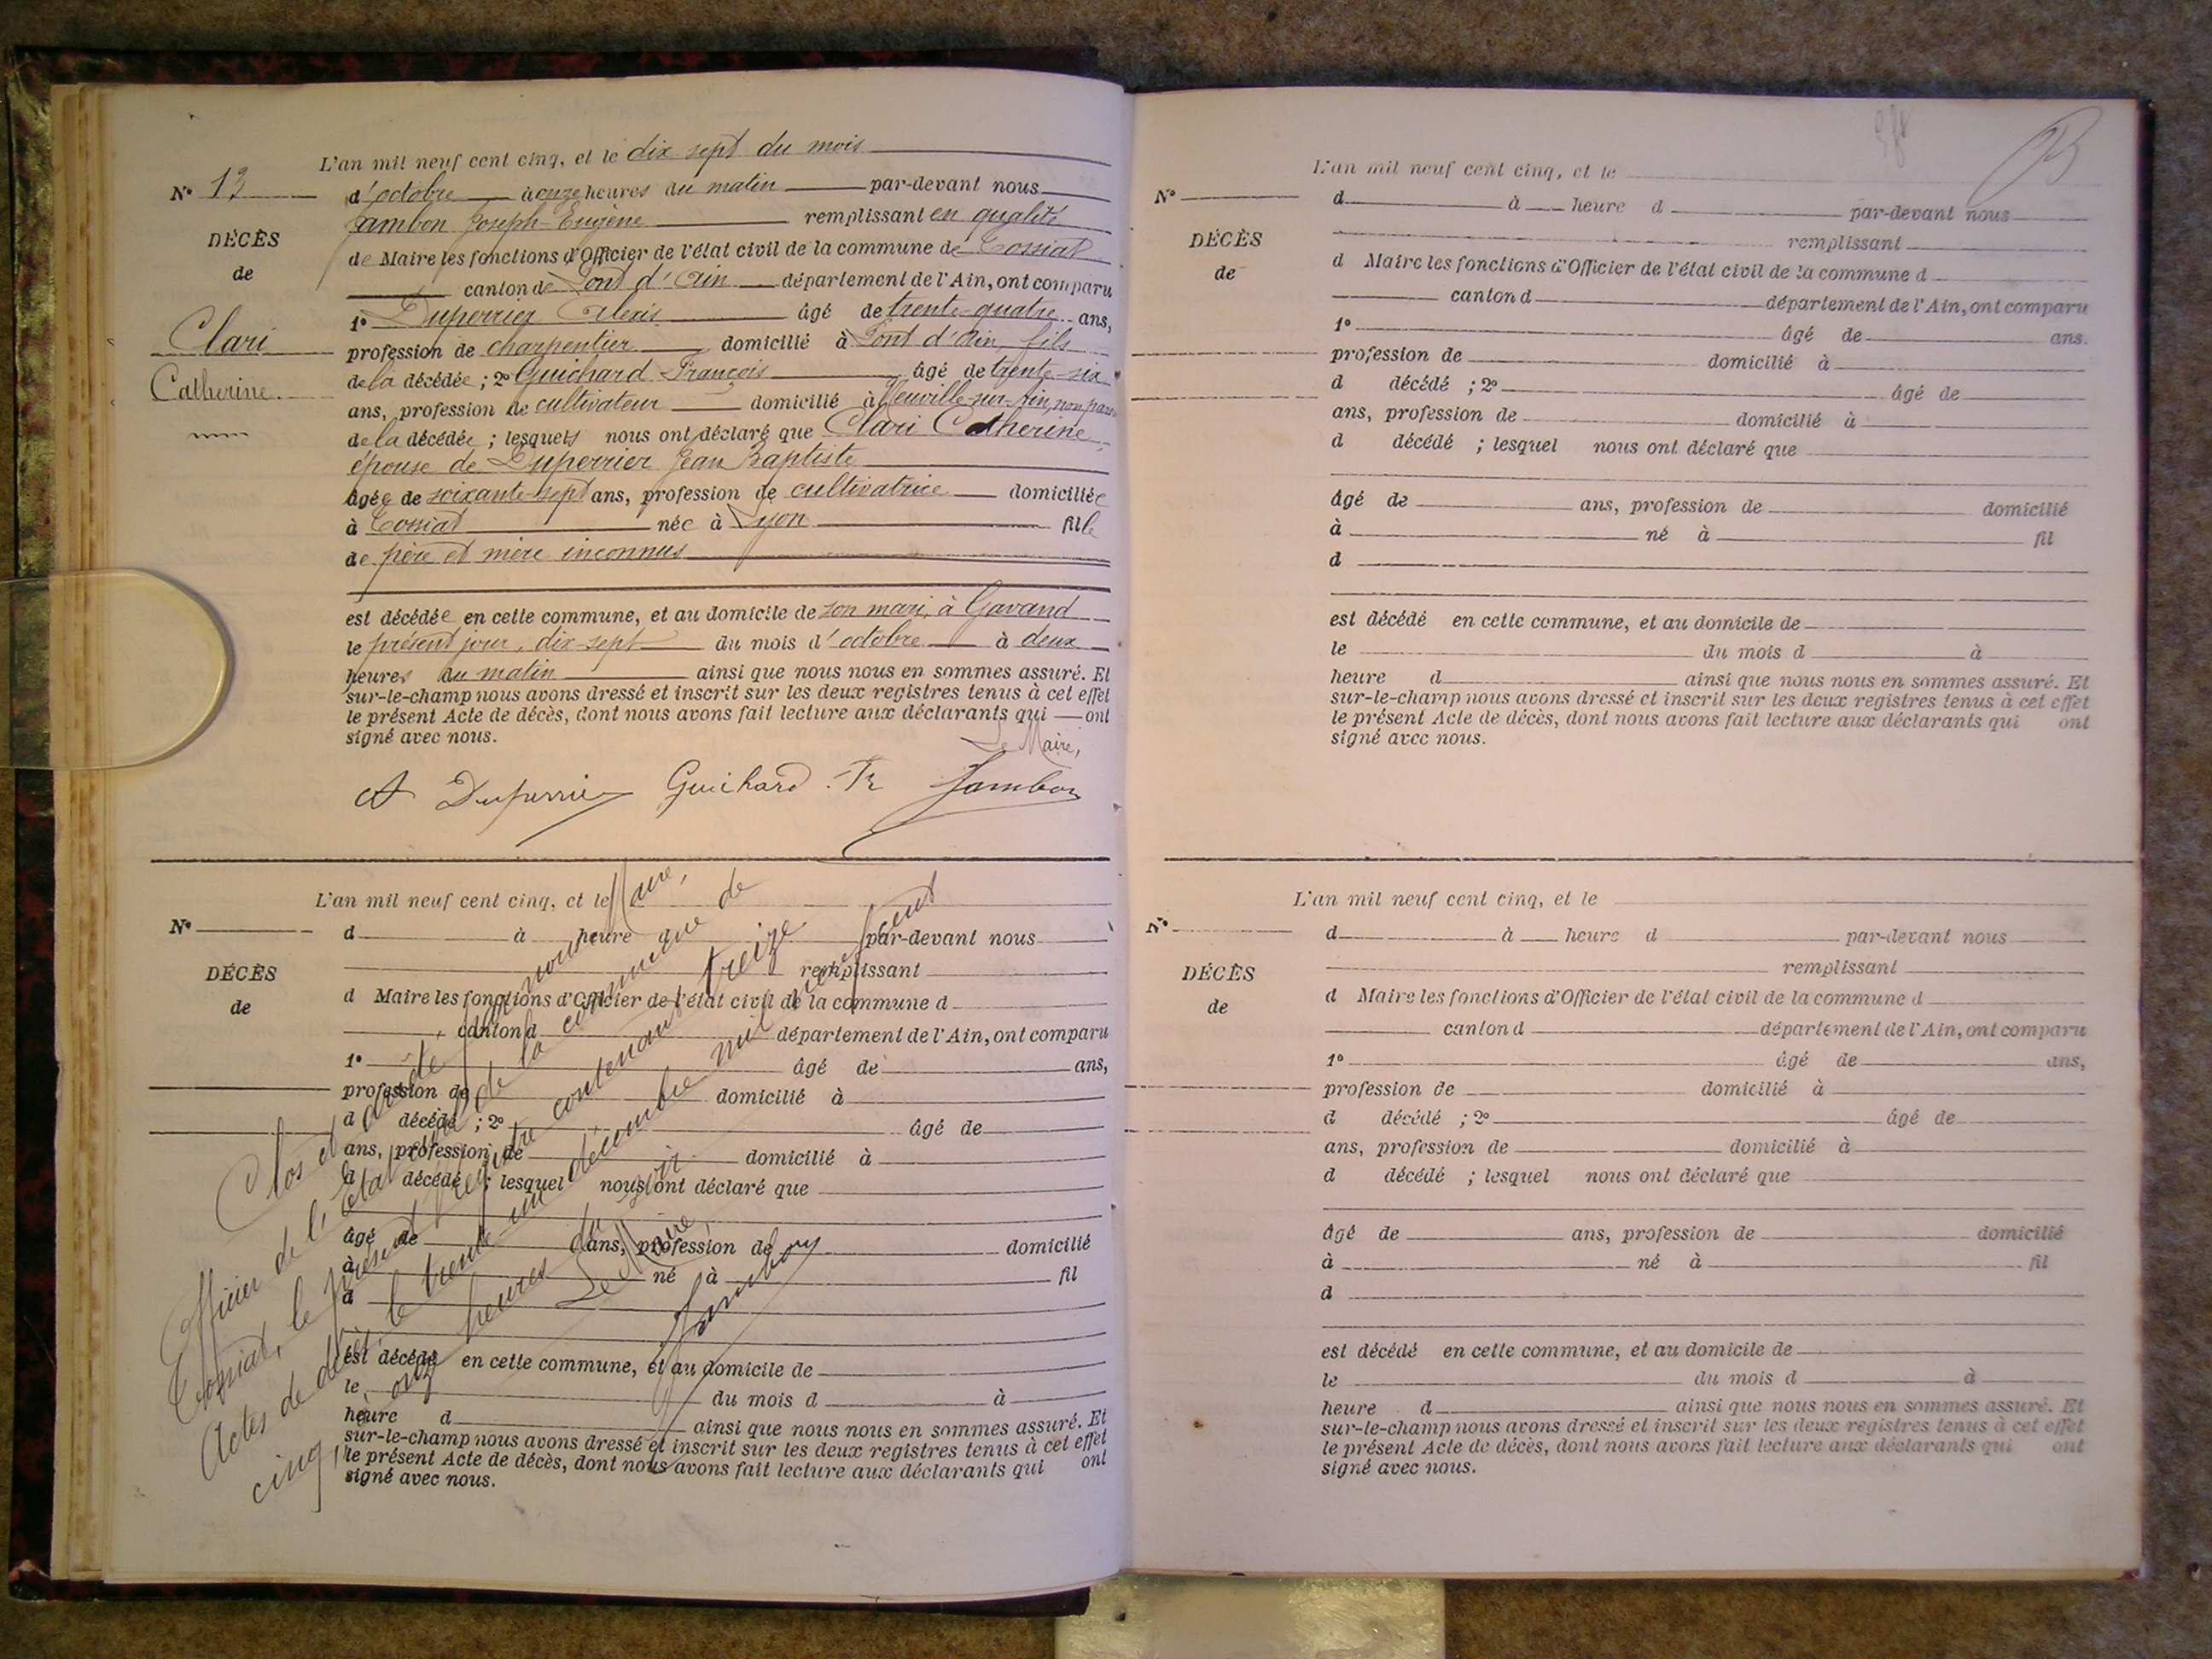 L'an mil neuf cent cinq, et le dix sept du mois
N° 13
d'octobre à onze heures du matin par-devant nous
Jambon Joseph-Eugène remplissant en qualité
DÉCÈS
de Maire les fonctions d'Officier de l'état civil de la commune de Tossiat
de
canton de Pont d'Ain département de l'Ain, ont comparu
1° Duperrier Alexis âgé de trente-quatre ans,
Clari
profession de charpentier domicilié à Pont d'Ain, fils
de la décédée ; 2° Guichard François âgé de trente-six
Catherine
ans, profession de cultivateur domicilié à Neuville-sur-Ain, non
de la décédée ; lesquels nous ont déclaré que Clari Catherine
épouse de Duperrier Jean Baptiste
âgée de soixante-sept ans, profession de cultivatrice domiciliée
à Tossiat née à Lyon fille
de père et mère inconnus
est décédée en cette commune, et au domicile de son mari, à Gavand
le présent jour, dix-sept du mois d'octobre à deux
heures du matin ainsi que nous nous en sommes assuré. Et
sur-le-champ nous avons dressé et inscrit sur les deux registres tenus à cet effet
le présent Acte de décès, dont nous avons fait lecture aux déclarants qui ont
signé avec nous.
Le Maire,
A Duperrier Guichard Fr Jambon
L'an mil neuf cent cinq, et le
N°
d à heure par-devant nous
remplissant
DÉCÈS
d Maire les fonctions d'Officier de l'état civil de la commune d
de
canton d département de l'Ain, ont comparu
1° âgé de ans,
profession de domicilié à
d décédé ; 2° âgé de
ans, profession de domicilié à
d décédé ; lesquel nous ont déclaré que
âgé de ans, profession de domicilié
à né à fil
d
est décédé en cette commune, et au domicile de
le du mois d à
heure d ainsi que nous nous en sommes assuré. Et
sur-le-champ nous avons dressé et inscrit sur les deux registres tenus à cet effet
le présent Acte de décès, dont nous avons fait lecture aux déclarants qui ont
signé avec nous.
Clos et arrêté par nous Maire,
Officier de l'Etat civil de la commune de
Tossiat, le présent registre contenant treize
Actes de décès, le trente un décembre mil neuf cent
cinq, à onze heures du soir.
Le Maire,
Jambon
L'an mil neuf cent cinq, et le
N°
d à heure d par-devant nous
remplissant
DÉCÈS
d Maire les fonctions d'Officier de l'état civil de la commune d
de
canton d département de l'Ain, ont comparu
1° âgé de ans.
profession de domicilié à
d décédé ; 2° âgé de
ans, profession de domicilié à
d décédé ; lesquel nous ont déclaré que
âgé de ans, profession de domicilié
à né à fil
d
est décédé en cette commune, et au domicile de
le du mois d à
heure d ainsi que nous nous en sommes assuré. Et
sur-le-champ nous avons dressé et inscrit sur les deux registres tenus à cet effet
le présent Acte de décès, dont nous avons fait lecture aux déclarants qui ont
signé avec nous.
L'an mil neuf cent cinq, et le
N°
d à heure d par-devant nous
remplissant
DÉCÈS
d Maire les fonctions d'Officier de l'état civil de la commune d
de
canton d département de l'Ain, ont comparu
1° âgé de ans,
profession de domicilié à
d décédé ; 2° âgé de
ans, profession de domicilié à
d décédé ; lesquel nous ont déclaré que
âgé de ans, profession de domicilié
à né à fil
d
est décédé en cette commune, et au domicile de
le du mois d à
heure d ainsi que nous nous en sommes assuré. Et
sur-le-champ nous avons dressé et inscrit sur les deux registres tenus à cet effet
le présent Acte de décès, dont nous avons fait lecture aux déclarants qui ont
signé avec nous.